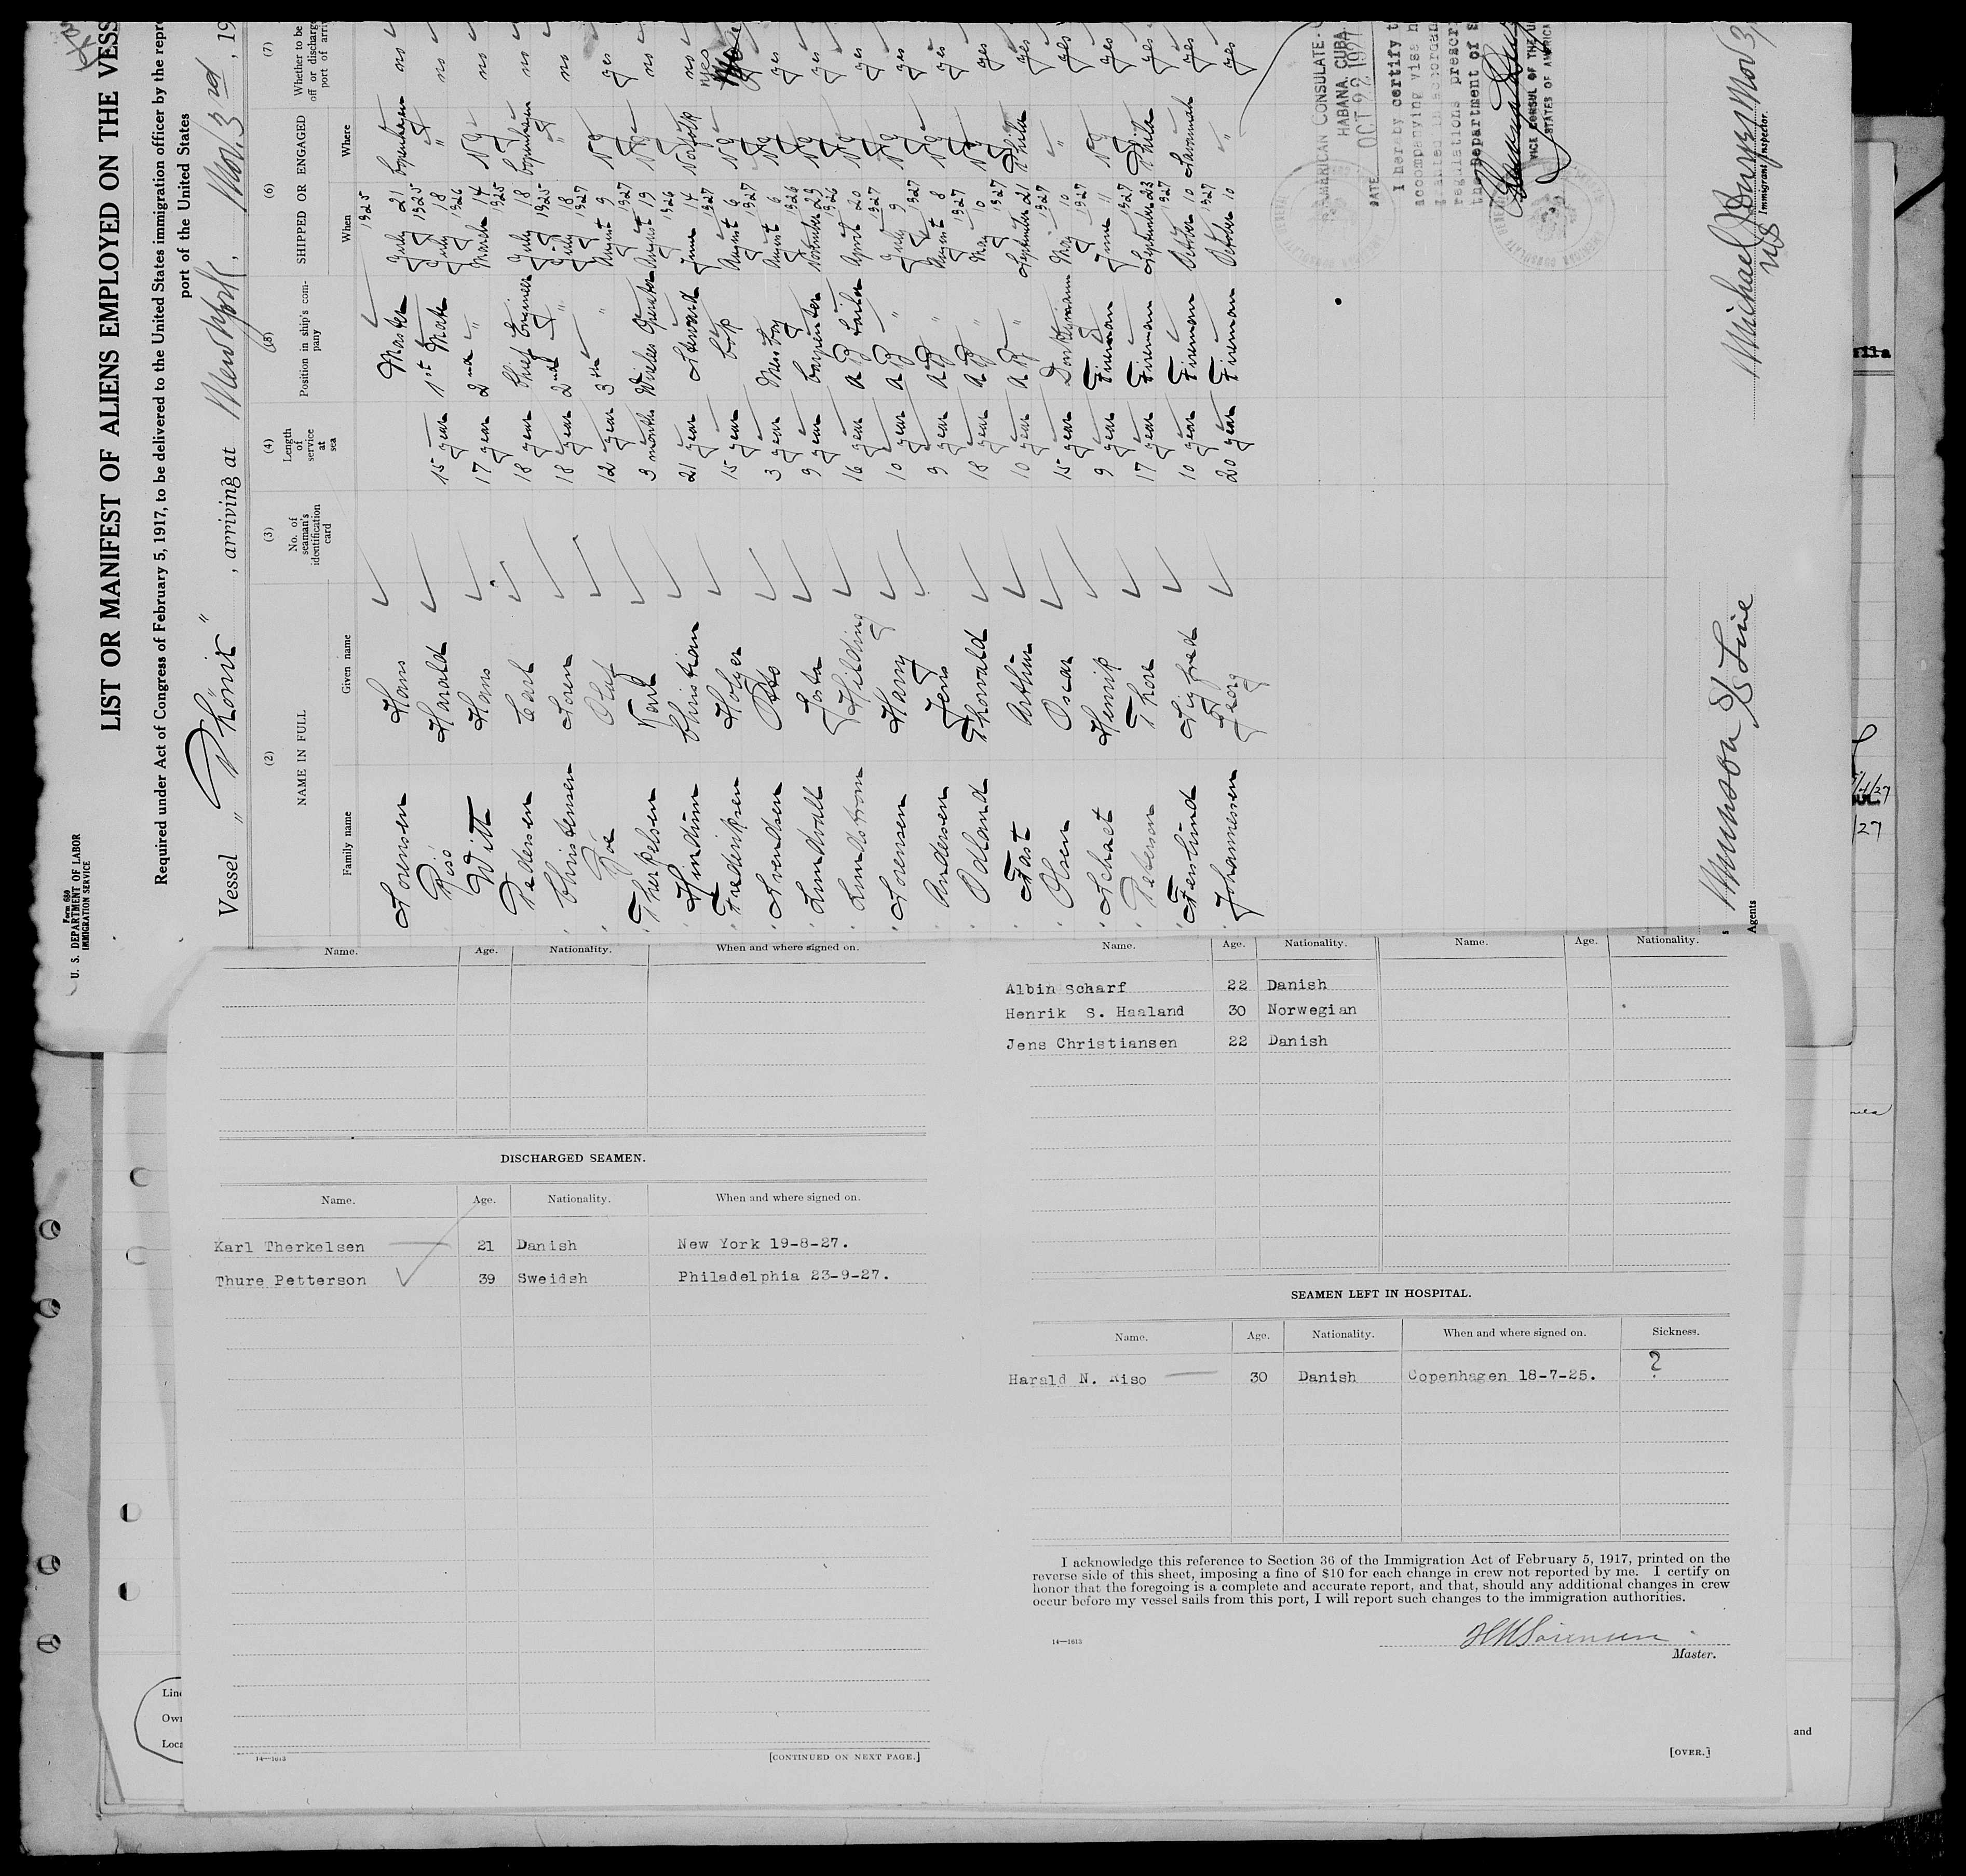 Form 680
U. S. DEPARTMENT OF LABOR
IMMIGRATION SERVICE
LIST OR MANIFEST OF ALIENS EMPLOYED ON THE VESS
Required under Act of Congress of February 5, 1917, to be delivered to the United States immigration officer by the repre
port of the United States
Vessel " Phönix " , arriving at New York, Nov. 3rd , 19
(2) (3) (4) (5) (6) (7)
NAME IN FULL
No. of seaman's identification card
Length of service at sea
Position in ship's company
SHIPPED OR ENGAGED
Whether to be
off or discharge
port of arriv
Family name Given name When Where
1925
Sorensen Hans Master July 21 Copenhagen no
1925
Riso Harald 15 year 1st Mate July 18 " no
1926
Witt Hans 17 year 2nd " March 14 N Y no
1925
Pedersen Carl 18 year Chief Engineer July 18 Copenhagen no
1925
Christensen Soren 18 year 2nd " July 18 " no
1927
Olaf 12 year 3th " August 9 N Y yes
1927
Therkelsen Karl 3 months Wireless Operator August 19 N Y no
1926
Christian 21 year Steward June 14 Norfolk no
1927
Frederiksen Holger 15 year August 6 N Y yes
1927
Svendsen Otto 3 year Mess boy August 6 N Y yes
1926
Lundvall Gosta 9 year Carpenter November 29 N Y yes
1926
Lundstrom Hilding 16 year A B Sailor April 20 N Y yes
1927
Sorensen Harry 10 year A B " July 9 N Y yes
1927
Andersen Jens 9 year A B " August 8 N Y yes
1927
Odland Thorvald 18 year A B " May 10 N Y yes
1927
Fast Arthur 10 year A B " September 21 Phila yes
1927
Olsen Oscar 15 year Donkeyman May 10 " yes
1927
Henrik 9 year Fireman June 11 N Y yes
1927
Peterson Thore 17 year Fireman September 23 Phila yes
1927
Sigfred 10 year Fireman October 10 Savannah yes
1927
Johannessen Georg 20 year Fireman October 10 " yes
AMERICAN CONSULATE-
HABANA, CUBA.
DATE OCT 22 1927
I hereby certify t
accompanying visa h
granted in accordan
regulations prescri
the Department of S
VICE CONSUL OF THE U
STATES OF AMERICA
Munson SS Line
Agents
Michael Nov 3,
Immigrant Inspector.
Name. Age. Nationality. When and where signed on.
DISCHARGED SEAMEN.
Name. Age. Nationality. When and where signed on.
Karl Therkelsen 21 Danish New York 19-8-27.
Thure Petterson 39 Sweidsh Philadelphia 23-9-27.
14—1613 [CONTINUED ON NEXT PAGE.]
Name. Age. Nationality. Name. Age. Nationality.
Albin Scharf 22 Danish
Henrik S. Haaland 30 Norwegian
Jens Christiansen 22 Danish
SEAMEN LEFT IN HOSPITAL.
Name. Age. Nationality. When and where signed on. Sickness.
Harald N. Riso 30 Danish Copenhagen 18-7-25. ?
I acknowledge this reference to Section 36 of the Immigration Act of February 5, 1917, printed on the
reverse side of this sheet, imposing a fine of $10 for each change in crew not reported by me. I certify on
honor that the foregoing is a complete and accurate report, and that, should any additional changes in crew
occur before my vessel sails from this port, I will report such changes to the immigration authorities.
14—1613
HNSorensen
Master.
[OVER.]
Line
Own
Loca
and